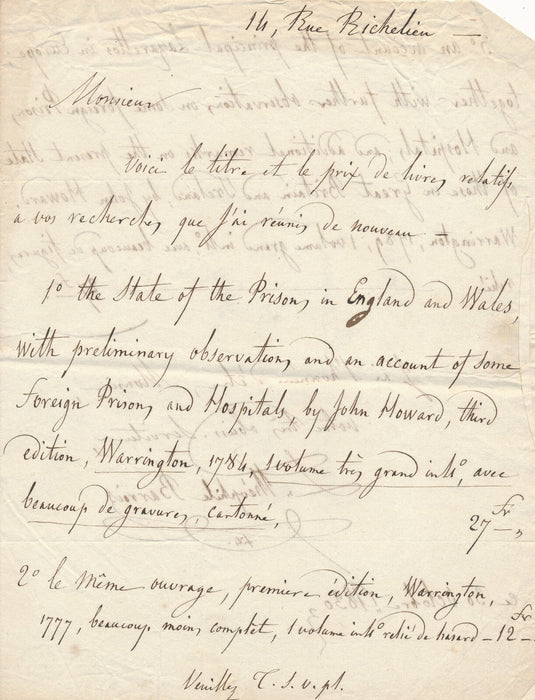 14, Rue Richelieu —
Monsieur
Voici le titre et le prix de livres relatifs
a vos recherches que j'ai réunis de nouveau —
1º the State of the Prisons in England and Wales,
with preliminary observations and an account of some
foreign Prisons and Hospitals by John Howard, third
edition, Warrington, 1784, 1 volume très grand in 4º, avec
beaucoup de gravures, cartonné,
27 fr — "
2º le même ouvrage, premiere édition, Warrington,
1777, beaucoup moins complet, 1 volume in 4º relié de hasard — 12 fr —
Veuillez T. S. v. pl.